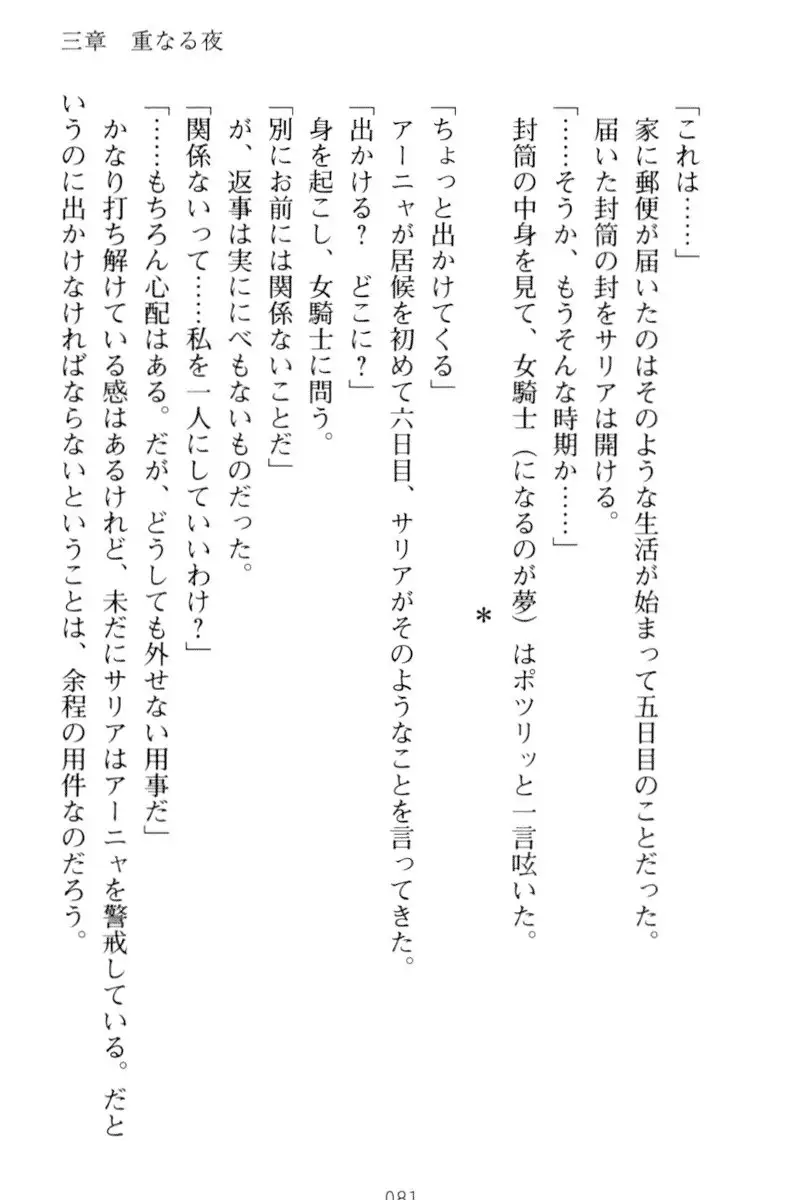 三章　重なる夜
「これは……」
家に郵便が届いたのはそのような生活が始まって五日目のことだった。
届いた封筒の封をサリアは開ける。
「……そうか、もうそんな時期か……」
封筒の中身を見て、女騎士（になるのが夢）はポツリッと一言呟いた。
＊
「ちょっと出かけてくる」
アーニャが居候を初めて六日目、サリアがそのようなことを言ってきた。
「出かける？　どこに？」
身を起こし、女騎士に問う。
「別にお前には関係ないことだ」
が、返事は実ににべもないものだった。
「関係ないって……私を一人にしていいわけ？」
「……もちろん心配はある。だが、どうしても外せない用事だ」
かなり打ち解けている感はあるけれど、未だにサリアはアーニャを警戒している。だと
いうのに出かけなければならないということは、余程の用件なのだろう。
081